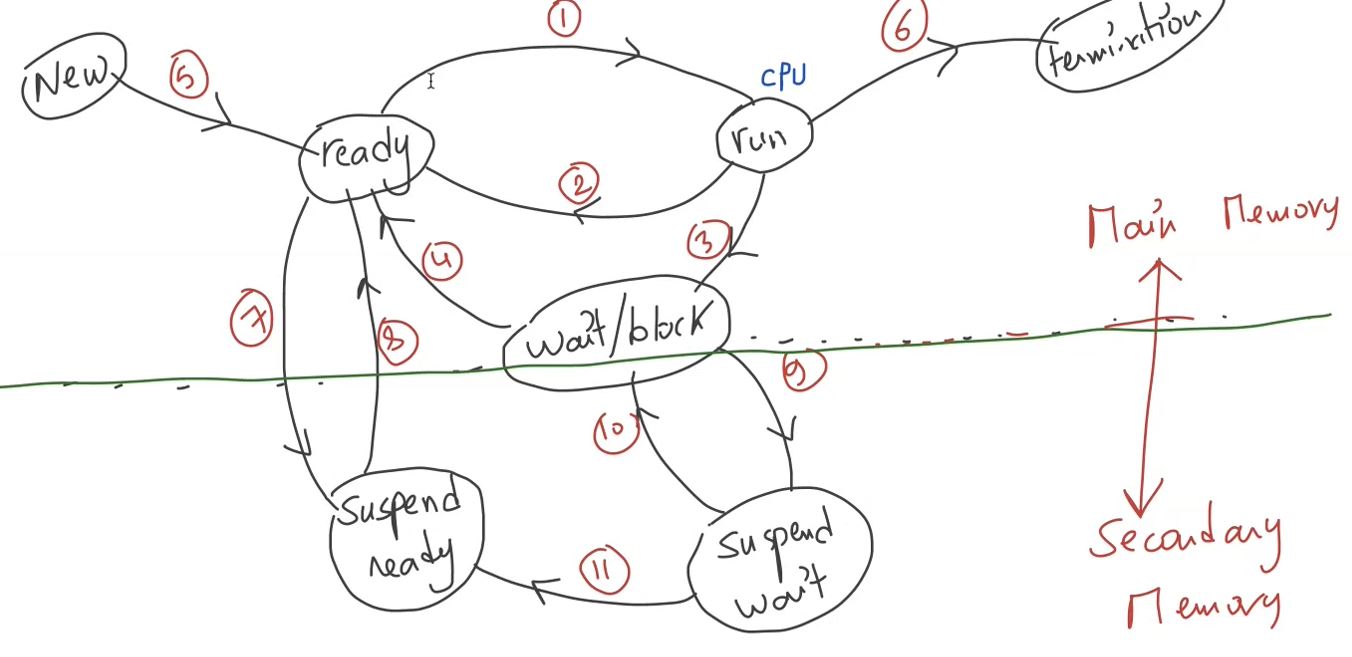 1
6
termination
New
5
CPU
ready
run
2
3
4
Main Memory
7
8
wait/block
9
10
Suspend
ready
11
Suspend
wait
Secondary
Memory